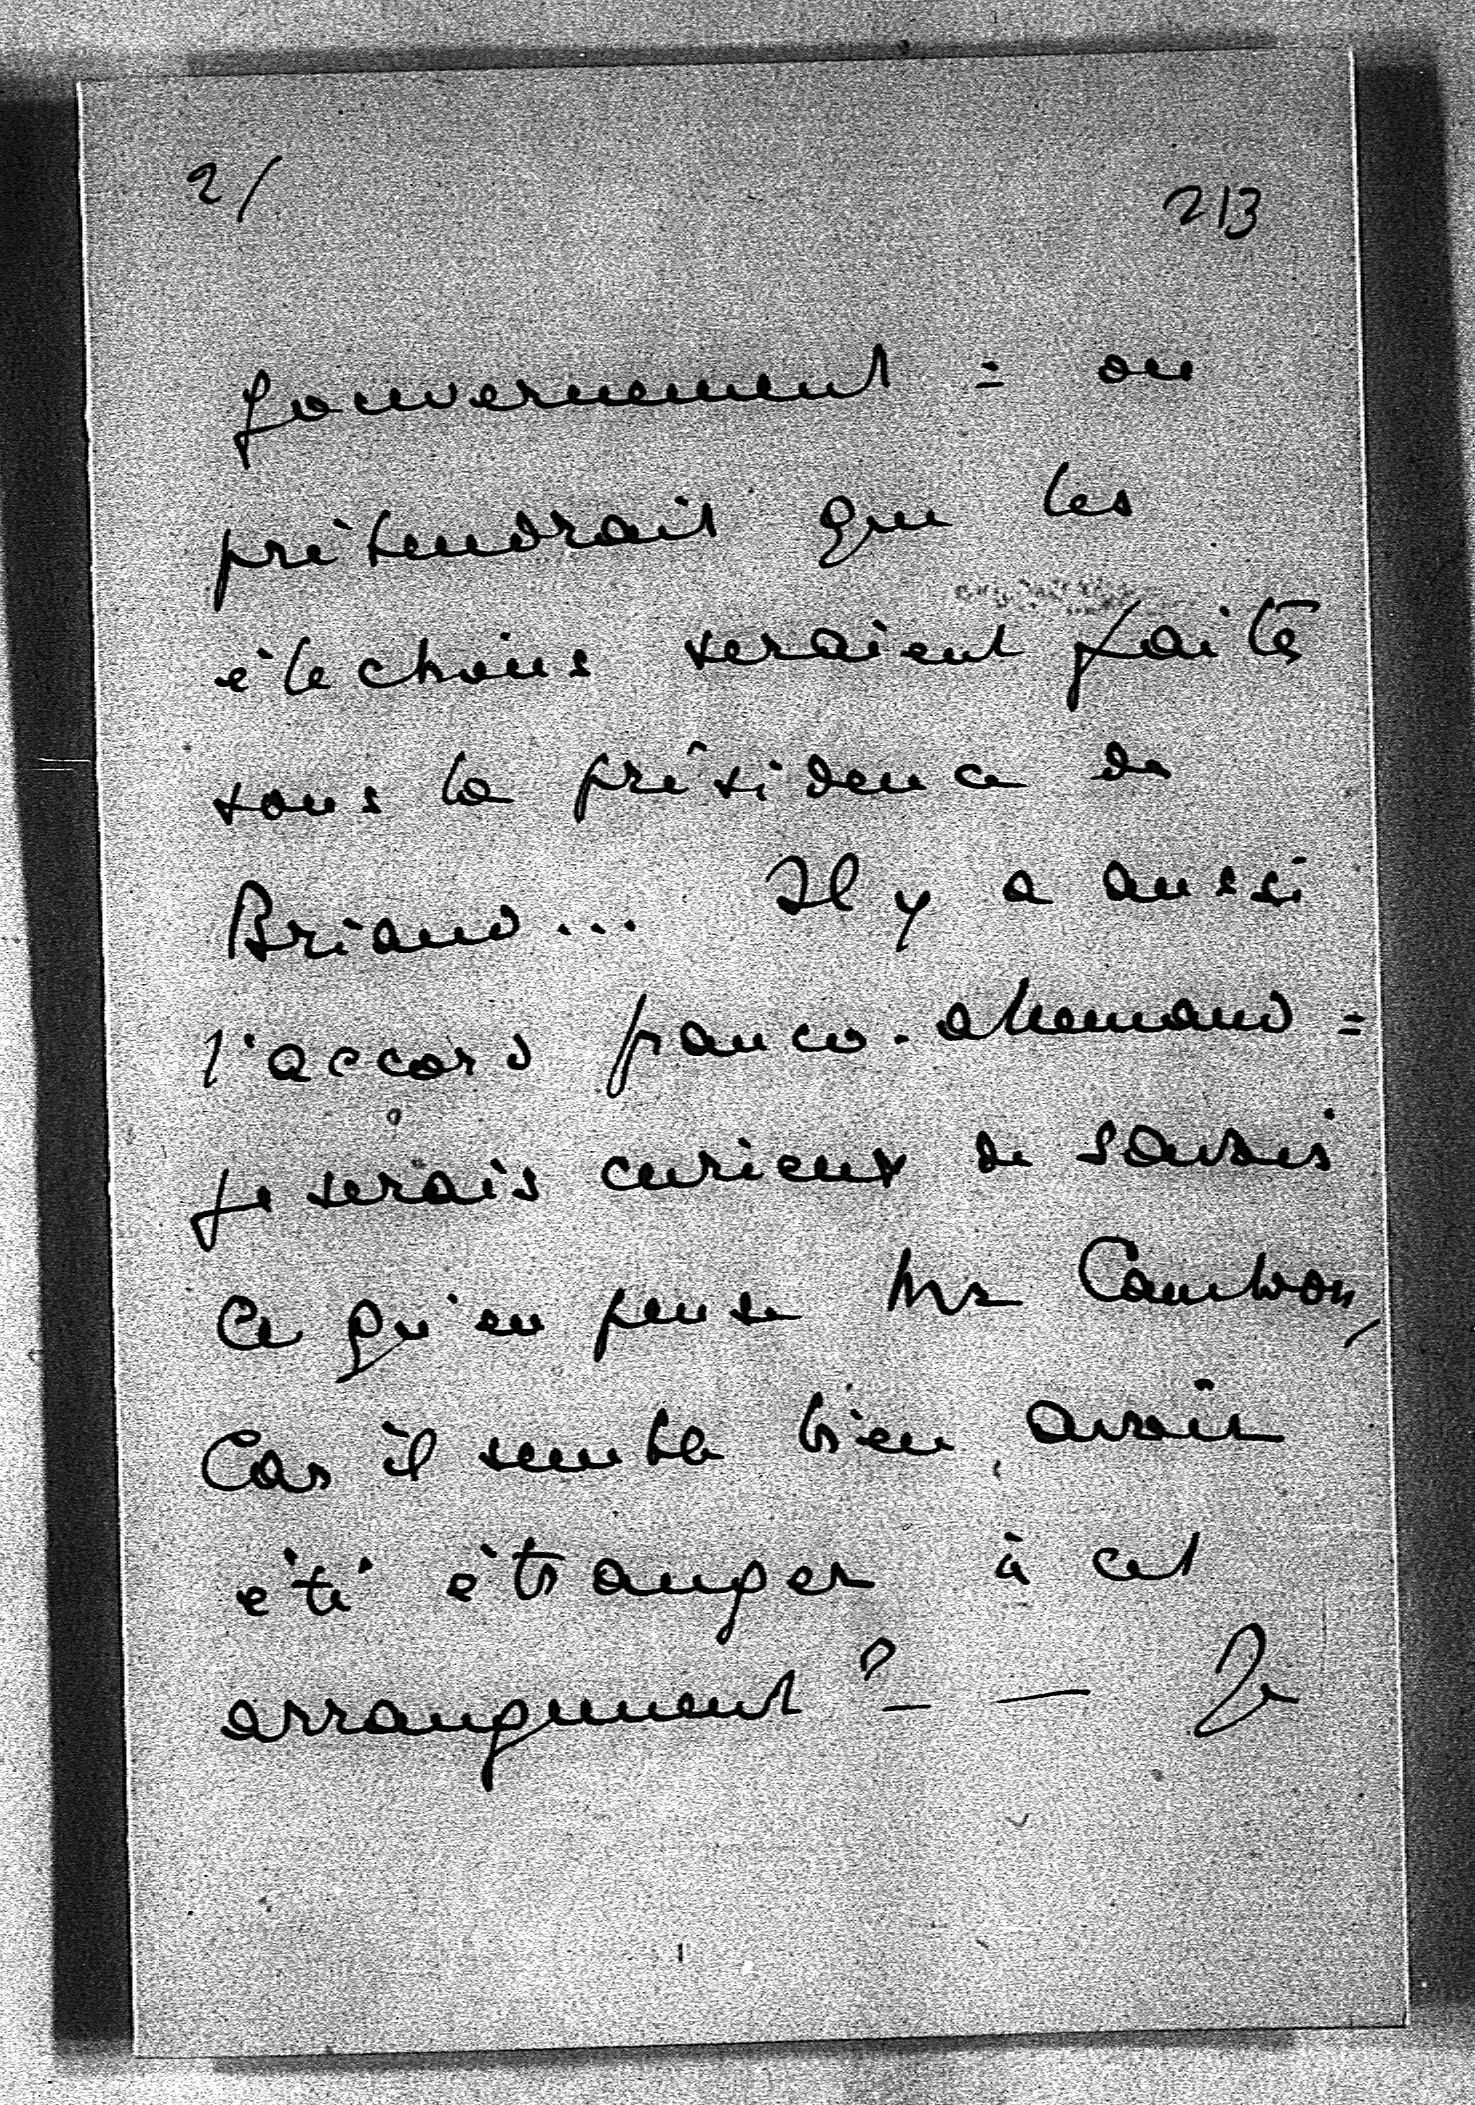 2/
213
gouvernement = on
prétendrait que les
élections seraient faites
sous la présidence de
Briand... Il y a aussi
l'accord franco-allemand =
je serais curieux de savoir
ce qu'en pense Mr Cambon,
Car il semble bien avoir
été étranger à cet
arrangement ? — — Je